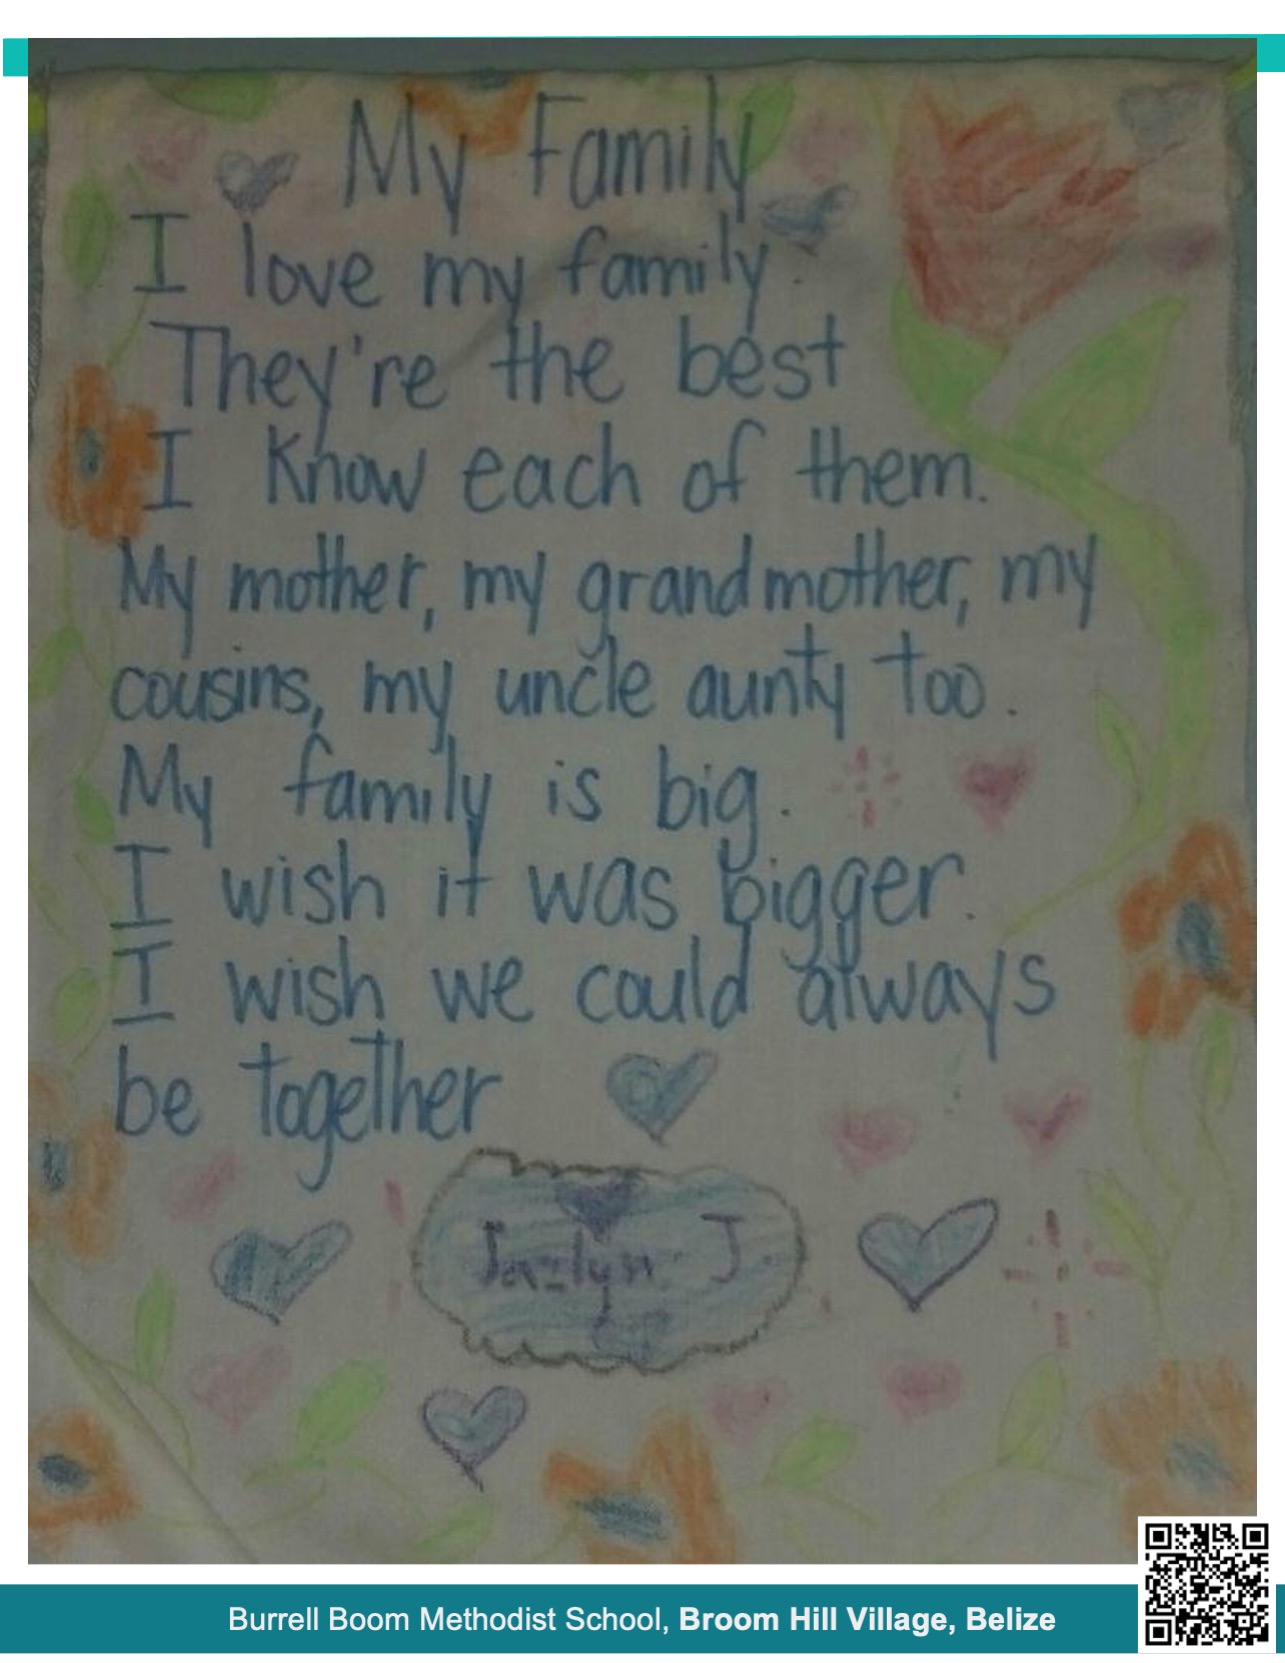 My Family
I love my family.
They're the best
I know each of them.
My mother, my grandmother, my
cousins, my uncle aunty too.
My family is big.
I wish it was bigger.
I wish we could always
be together
Jazlyn J.
Burrell Boom Methodist School, Broom Hill Village, Belize